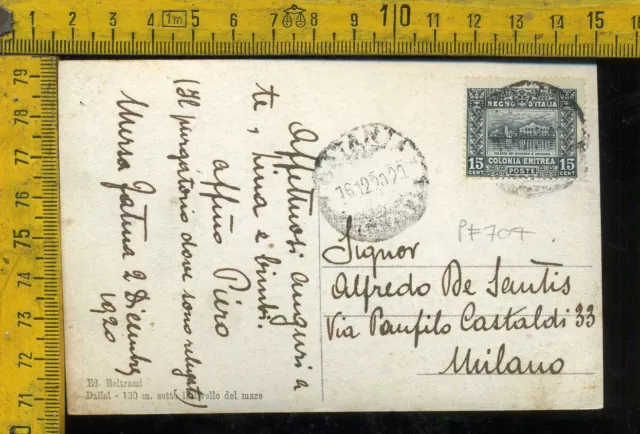 Affettuosi auguri a
te, Nina e bimbi.
affmo Piero
(Il purgatorio dove sono relegato)
Mersa Fatma 2 Dicembre
1920
Ed. Beltrami
Dallol - 120 m. sotto il livello del mare
REGNO D'ITALIA
15 COLONIA ERITREA 15
CENT POSTE CENT
16.12.20
P#704
Signor
Alfredo De Santis
Via Panfilo Castaldi 33
Milano
1m 2 3 4 5 6 7 8 9 10 1 2 3 4 15 16
79
78
77
76
75
74
73
72
71